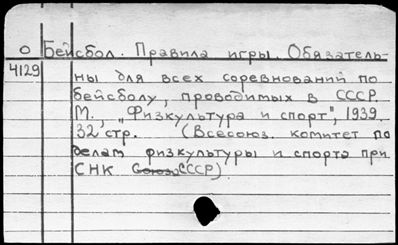 О Бейсбол. Правила игры. Обязатель-
4129 ны для всех соревнований по
бейсболу, проводимых в СССР.
М., "Физкультура и спорт", 1939.
32 стр. (Всесоюз. комитет по
делам физкультуры и спорта при
СНК Союз. СССР)